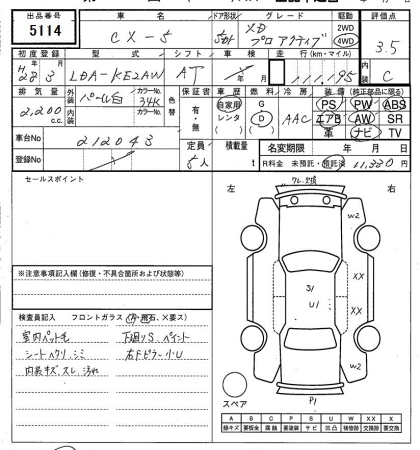 出品番号 車名 ドア形状 グレード 駆動 評価点
5114 CX-5 5ドア XD プロアクティブ 2WD 4WD 3.5
初度登録 型式 シフト 車検 走行(km・マイル) 内装
28 3 LDA-KE2AW AT 年 月 111,195 C
排気量 外装 パール白 カラーNo. 34K 色替 保証書 車歴 燃料 冷房 装備(純正部品に限る)
2,200 c.c. 内装 カラーNo. 有・無 自家用 レンタ ( ) G D ( ) AAC PS PW ABS
エアB AW SR
革 ナビ TV
車台No 212043 定員 積載量 名変期限 年 月 日
登録No 5人 t R料金 未預託・預託済 11,330 円
セールスポイント
左 フレ 右
W2
XX
S/
U/
XX
W2
P1
スペア
※注意事項記入欄(修復・不具合箇所および状態等)
検査員記入 フロントガラス(A・飛石、×要ス)
室内ペット毛 下廻りS、ペイント
シートヘタリ、シミ 右Fピラー小U
内装キズ、スレ、汚れ
A B C P S U W XX X
線キズ 要板金 腐蝕 要塗装 サビ 凹凸 補修跡 交換跡 要交換